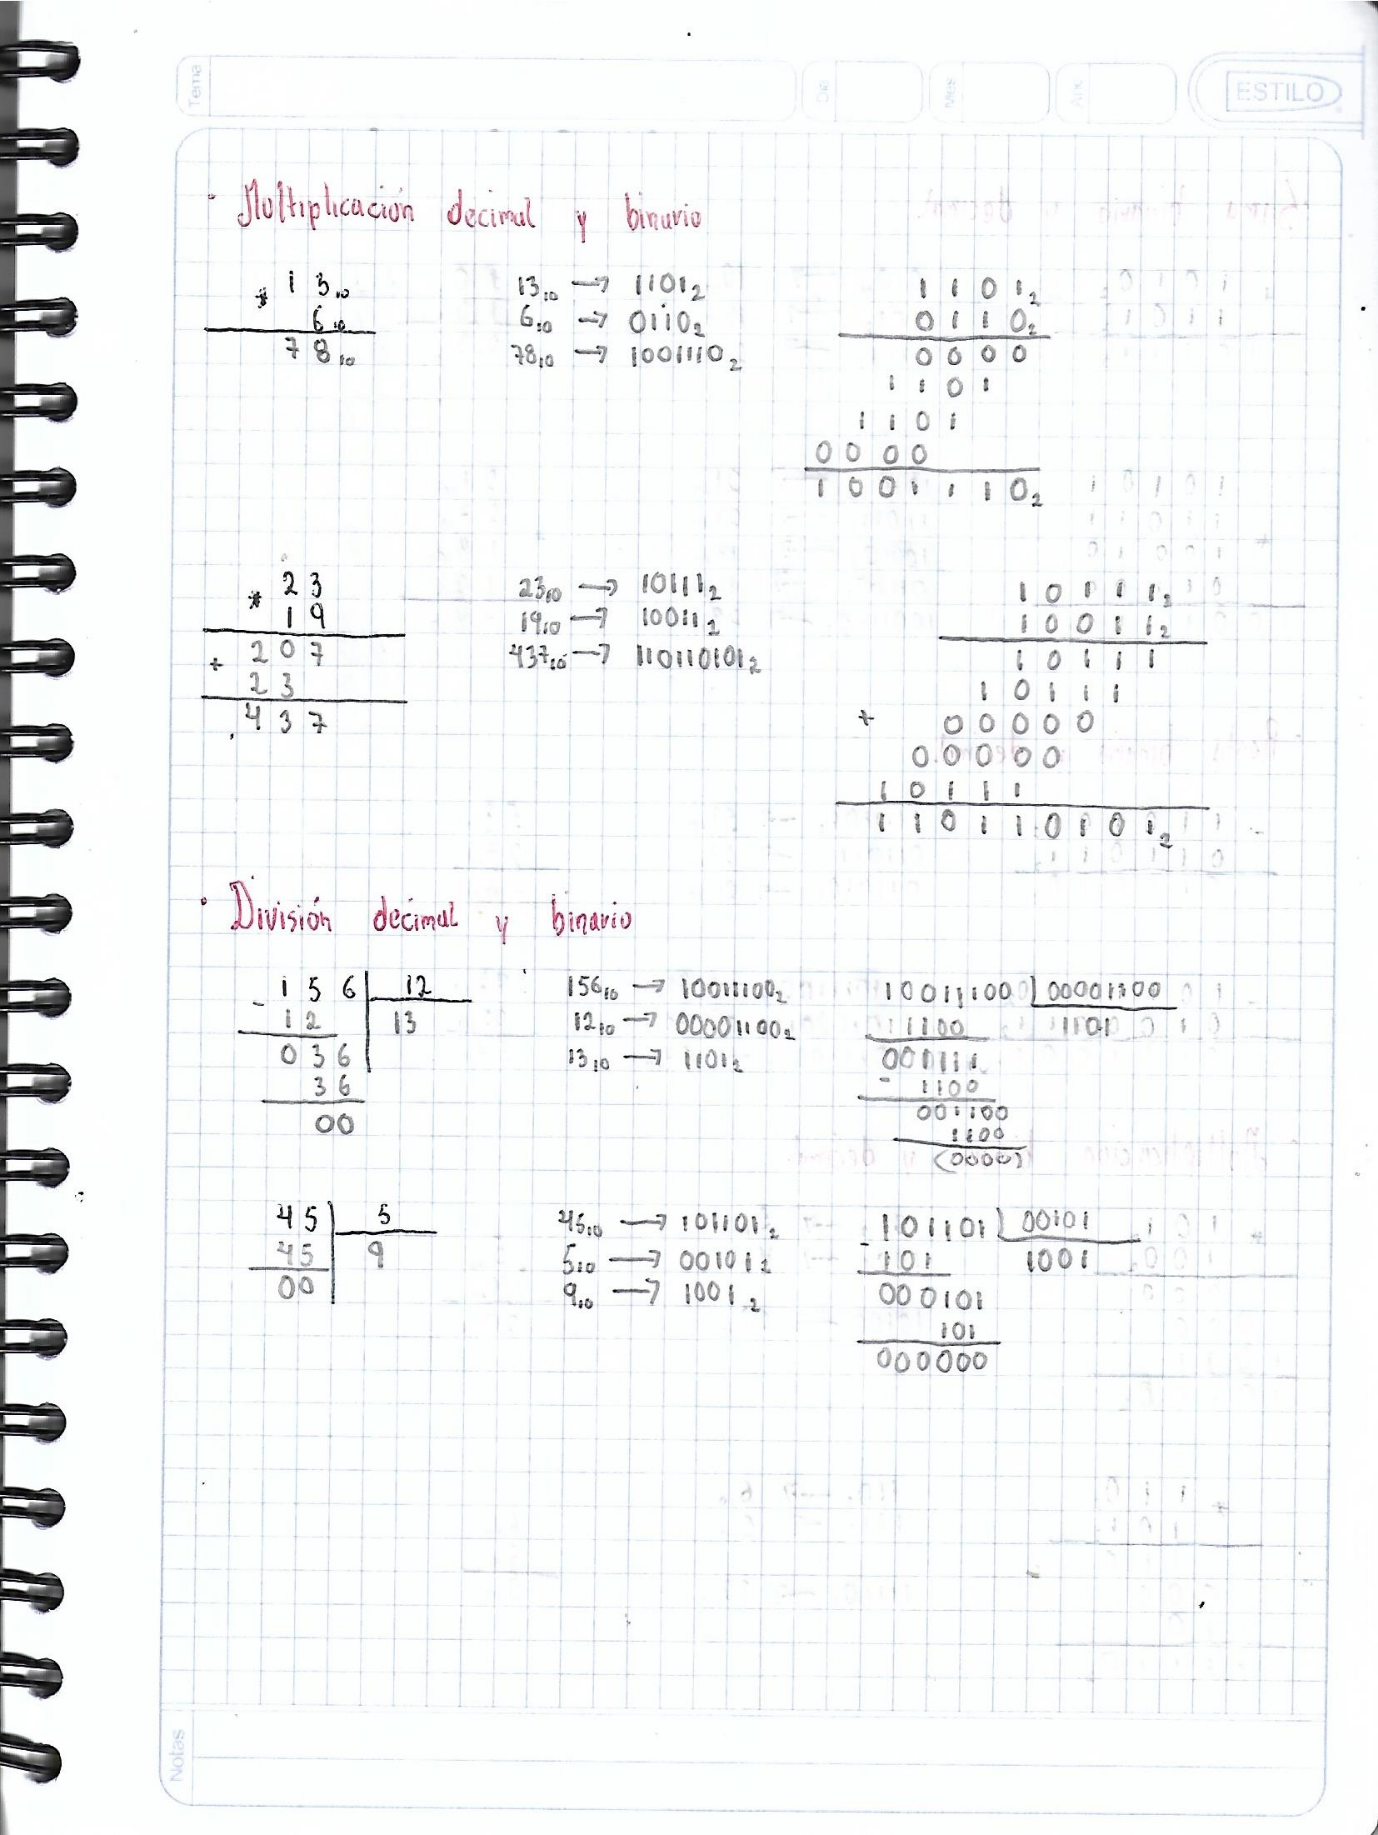 Tema Día Mes Año ESTILO
· Multiplicación decimal y binario
* 1 3₁₀
6₁₀
7 8₁₀
13₁₀ → 1101₂
6₁₀ → 0110₂
78₁₀ → 1001110₂
1 1 0 1₂
0 1 1 0₂
0 0 0 0
1 1 0 1
1 1 0 1
0 0 0 0
1 0 0 1 1 1 0₂
* 2 3
1 9
+ 2 0 7
2 3
4 3 7
23₁₀ → 10111₂
19₁₀ → 10011₂
437₁₀ → 110110101₂
1 0 1 1 1₂
1 0 0 1 1₂
1 0 1 1 1
1 0 1 1 1
+ 0 0 0 0 0
0 0 0 0 0
1 0 1 1 1
1 1 0 1 1 0 1 0 1₂
· División decimal y binario
- 1 5 6 | 12
1 2 13
0 3 6
3 6
00
156₁₀ → 10011100₂
12₁₀ → 00001100₂
13₁₀ → 1101₂
10011100 | 00001100
1100 1101
001111
- 1100
001100
1100
(0000)
45 | 5
45 9
00
45₁₀ → 101101₂
5₁₀ → 00101₂
9₁₀ → 1001₂
- 101101 | 00101
101 1001
000101
101
000000
Notas